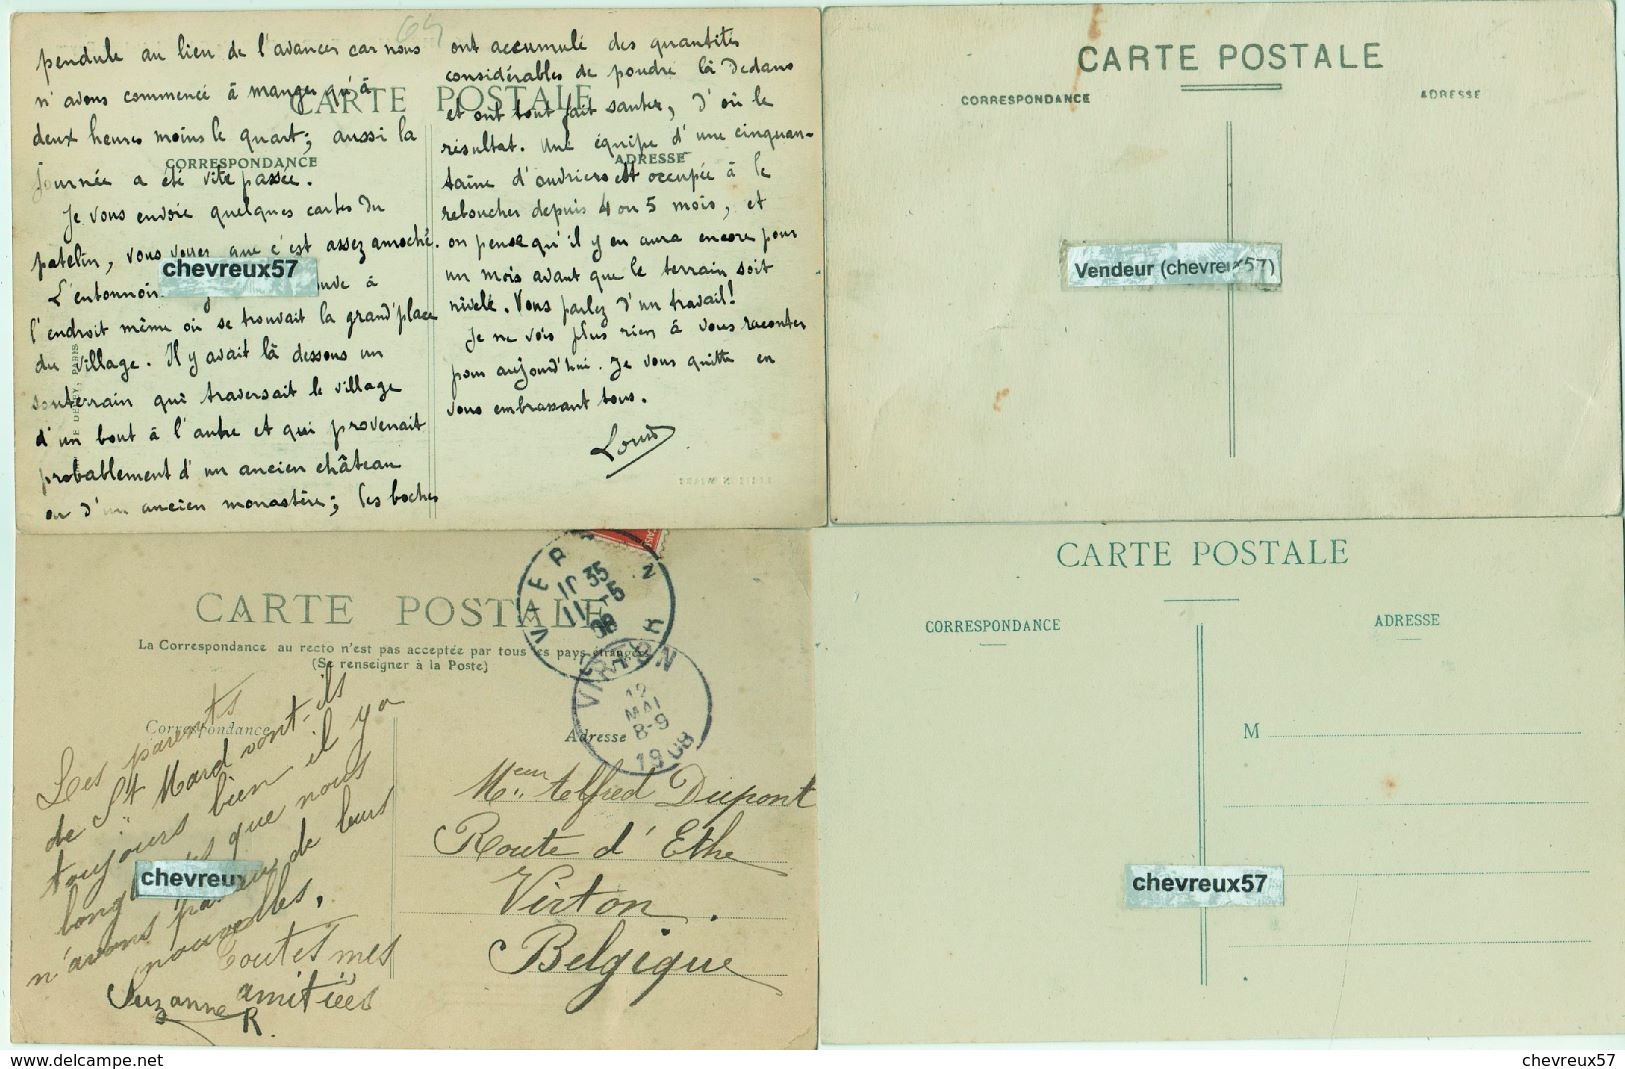 64
pendule au lieu de l'avancer car nous
n'avons commencé à manger qu'à
CARTE POSTALE
deux heures moins le quart; aussi la
CORRESPONDANCE
journée a été vite passée.
Je vous envoie quelques cartes du
patelin, vous voyez que c'est assez amoché.
chevreux57
L'entonnoir ouve à
l'endroit même où se trouvait la grand'place
du village. Il y avait là dessous un
souterrain qui traversait le village
d'un bout à l'autre et qui provenait
probablement d'un ancien château
ou d'un ancien monastère; les boches
ont accumulé des quantités
considérables de poudre là dedans
et ont tout fait sauter, d'où le
résultat. Une équipe d'une cinquan-
ADRESSE
taine d'ouvriers est occupée à le
reboucher depuis 4 ou 5 mois, et
on pense qu'il y en aura encore pour
un mois avant que le terrain soit
nivelé. Vous parlez d'un travail!
Je ne vois plus rien à vous raconter
pour aujourd'hui. Je vous quitte en
vous embrassant tous.
Louis
CARTE POSTALE
CORRESPONDANCE
ADRESSE
Vendeur (chevreux57)
CARTE POSTALE
La Correspondance au recto n'est pas acceptée par tous les pays étrangers
(Se renseigner à la Poste)
Correspondance
Adresse
11 -5
08
VIRTON
12
MAI
8-9
1908
Les parents
de St Mard vont-ils
toujours bien il y a
longtemps que nous
n'avons pas eu de leurs
nouvelles.
Toutes mes
amitiées
Suzanne R.
chevreux
Alfred Dupont
Route d'Ethe
Virton.
Belgique
CARTE POSTALE
CORRESPONDANCE
ADRESSE
M
chevreux57
www.delcampe.net
chevreux57